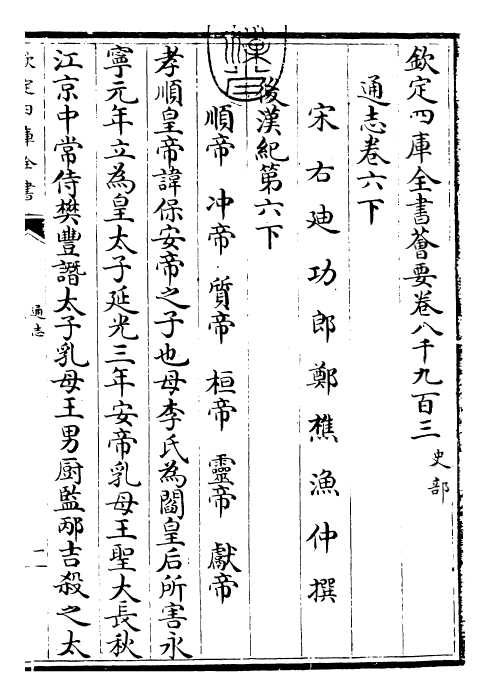 欽定四庫全書薈要卷八千九百三 史部
通志卷六下
宋右迪功郎鄭樵漁仲撰
後漢紀第六下
順帝 沖帝 質帝 桓帝 靈帝 獻帝
孝順皇帝諱保安帝之子也母李氏為閻皇后所害永
寧元年立為皇太子延光三年安帝乳母王聖大長秋
江京中常侍樊豐譖太子乳母王男厨監邴吉殺之太
欽定四庫全書
通志